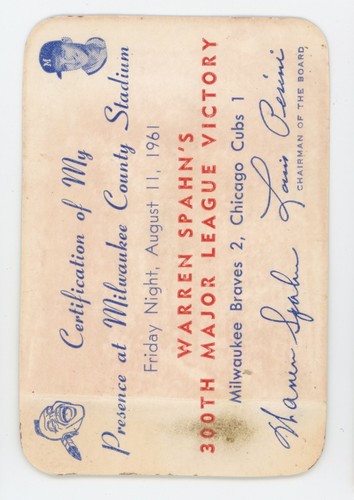 Certification of My
Presence at Milwaukee County Stadium
Friday Night, August 11, 1961
WARREN SPAHN'S
300TH MAJOR LEAGUE VICTORY
Milwaukee Braves 2, Chicago Cubs 1
Warren Spahn Louis Perini
CHAIRMAN OF THE BOARD
M